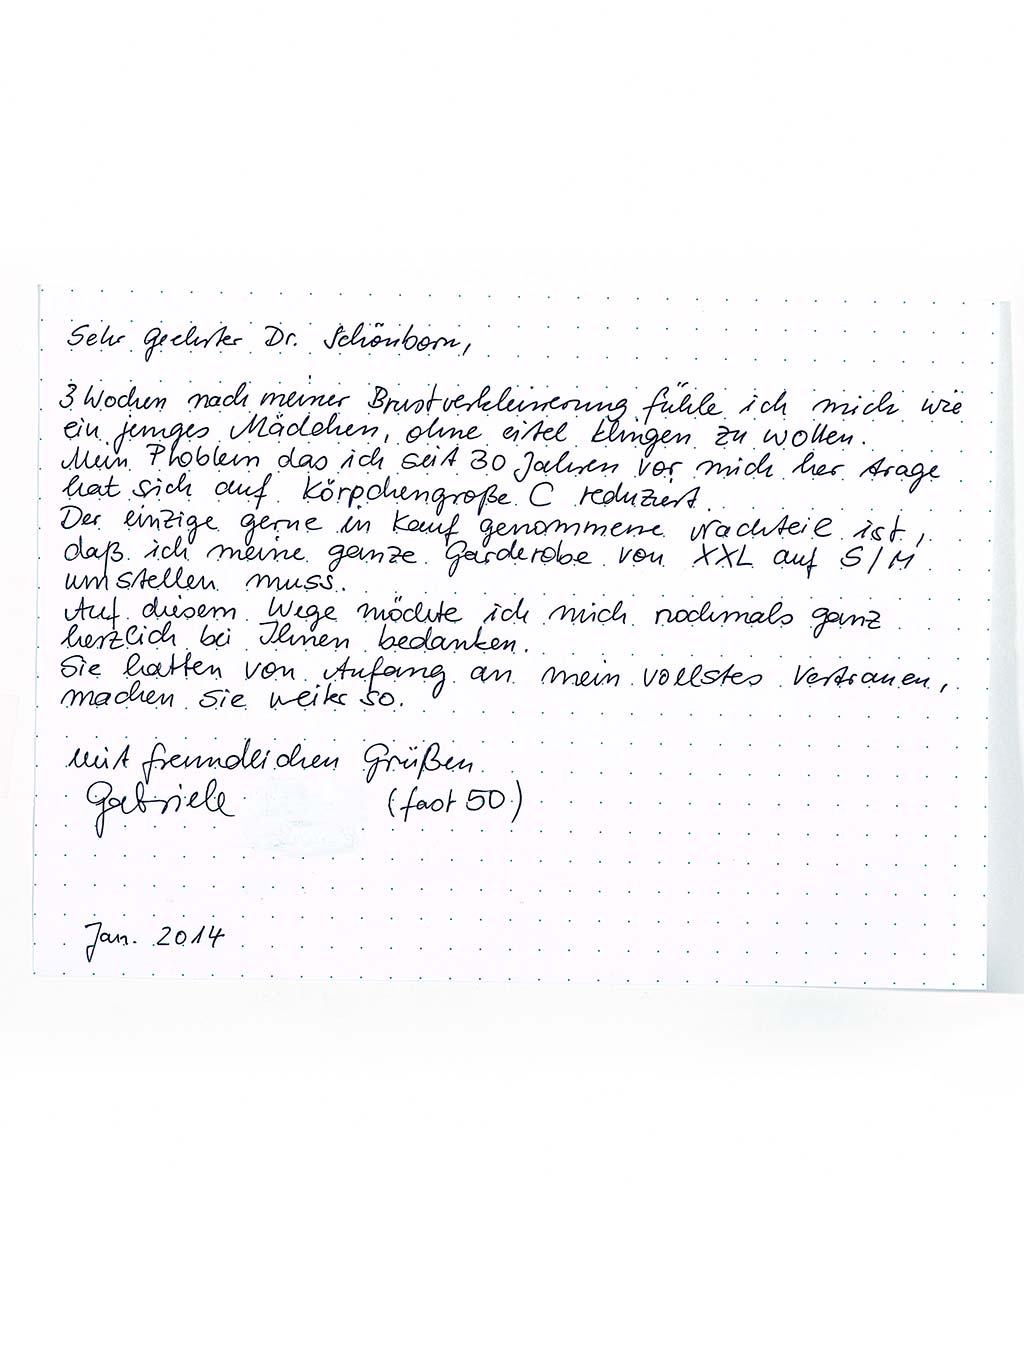 Sehr geehrter Dr. Schönborn,
3 Wochen nach meiner Brustverkleinerung fühle ich mich wie
ein junges Mädchen, ohne eitel klingen zu wollen.
Mein Problem das ich seit 30 Jahren vor mich her trage
hat sich auf Körpchengröße C reduziert.
Der einzige gerne in Kauf genommene Nachteil ist,
daß ich meine ganze Garderobe von XXL auf S/M
umstellen muss.
Auf diesem Wege möchte ich mich nochmals ganz
herzlich bei Ihnen bedanken.
Sie hatten von Anfang an mein vollstes Vertrauen,
machen Sie weiter so.
Mit freundlichen Grüßen
Gabriele (fast 50)
Jan. 2014